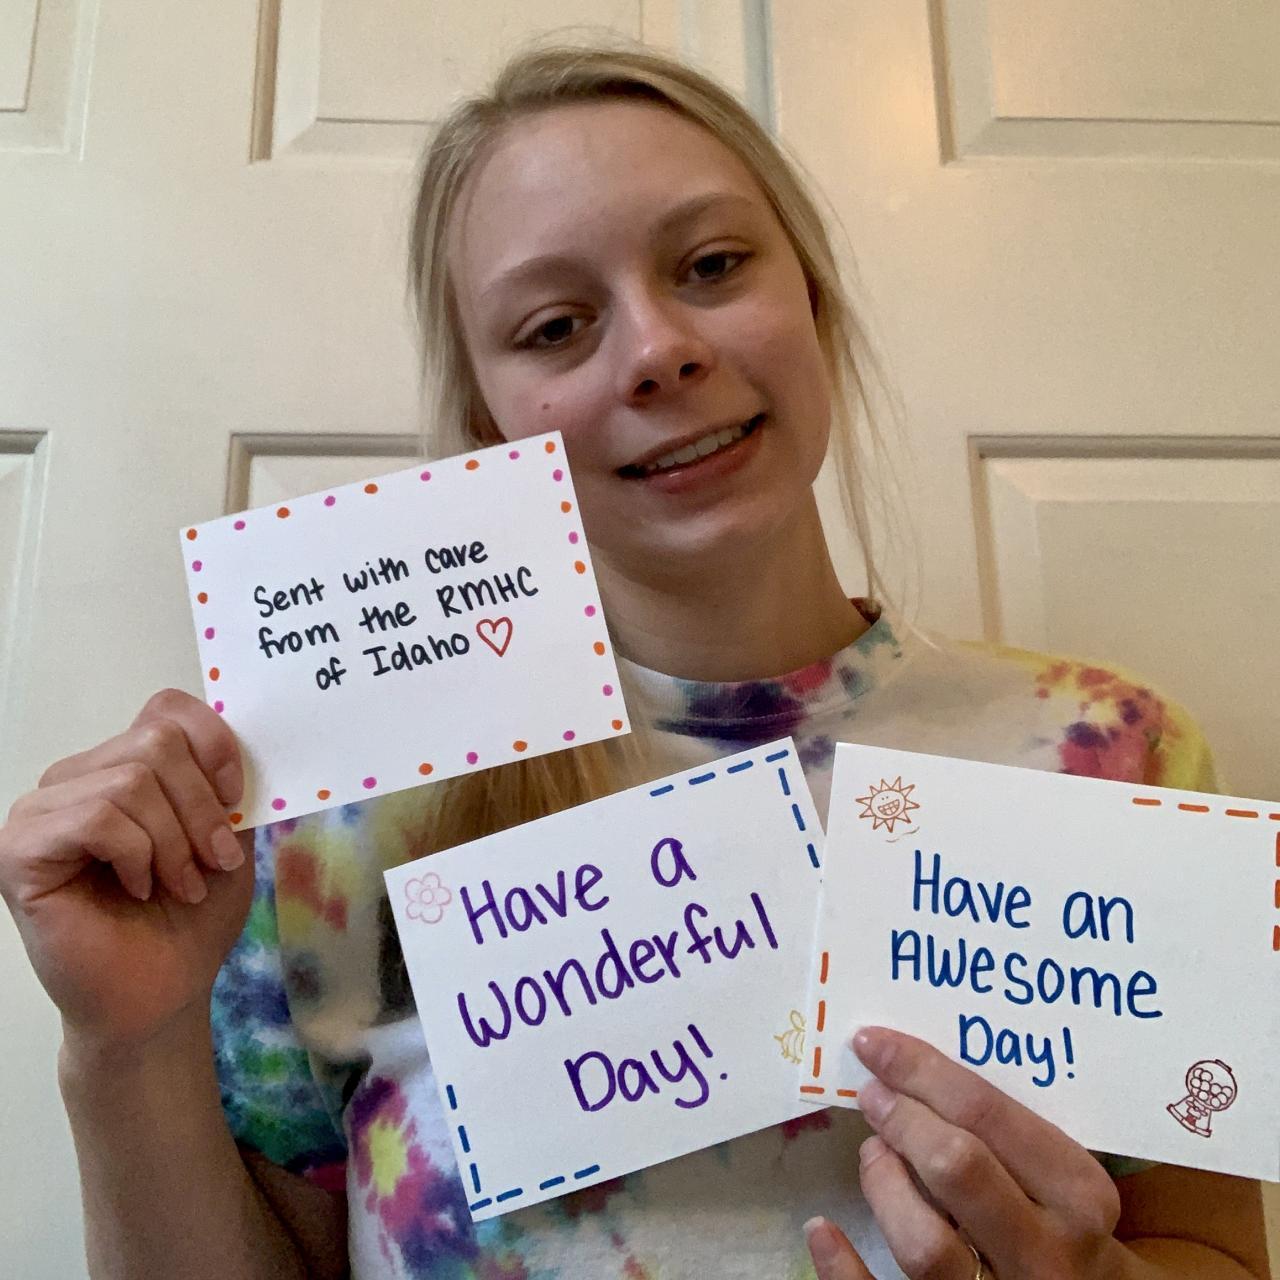 Sent with care
from the RMHC
of Idaho
Have a
Wonderful
Day!
Have an
AWesome
Day!